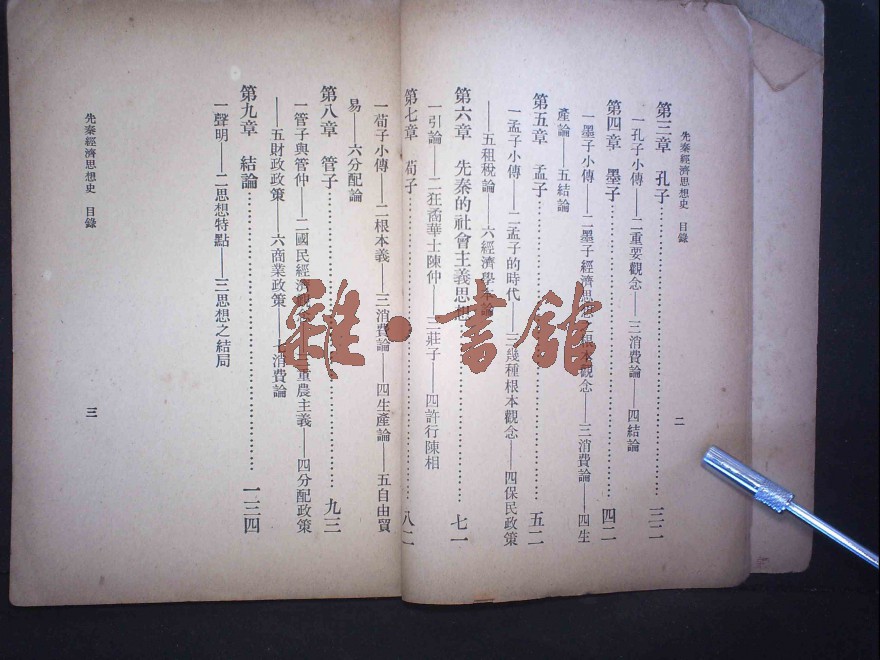 先秦經濟思想史 目錄
二
第三章 孔子……三二
一孔子小傳——二重要觀念——三消費論——四結論
第四章 墨子……四二
一墨子小傳——二墨子經濟思想之根本觀念——三消費論——四生
產論——五結論
第五章 孟子……五二
一孟子小傳——二孟子的時代——三幾種根本觀念——四保民政策
——五租稅論——六經濟學 論
第六章 先秦的社會主義思想……七一
一引論——二狂矞華士陳仲——三莊子——四許行陳相
第七章 荀子……八二
一荀子小傳——二根本義——三消費論——四生產論——五自由貿
易——六分配論
第八章 管子……九三
一管子與管仲——二國民經濟 ——三重農主義——四分配政策
——五財政政策——六商業政策——七消費論
第九章 結論……一三四
一聲明——二思想特點——三思想之結局
先秦經濟思想史 目錄
三
雜·書館